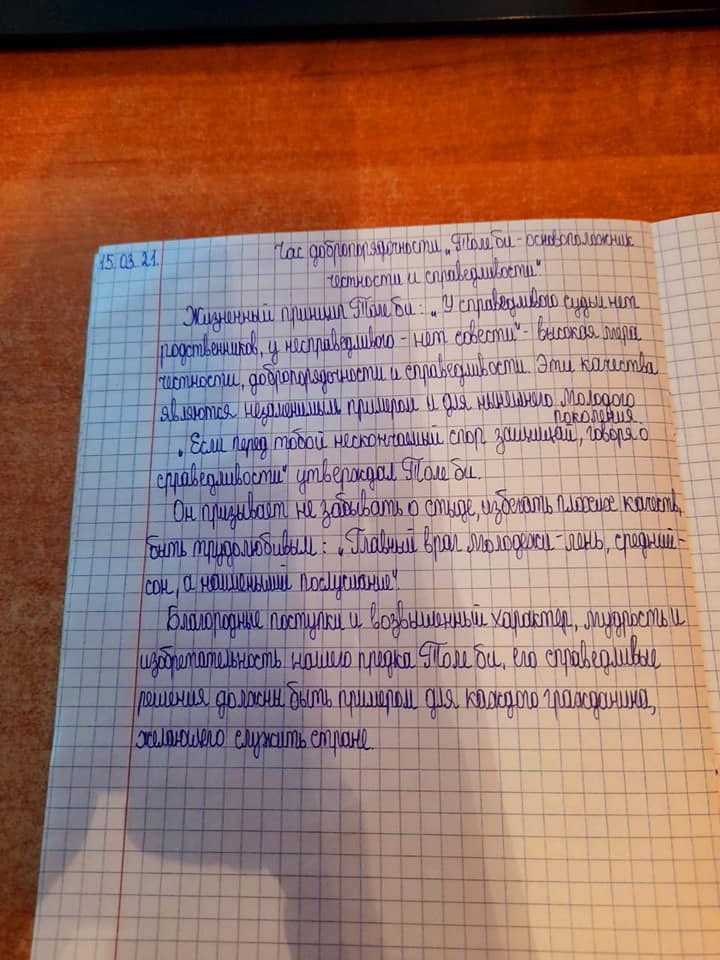 15.03.21.
Час добропорядочности „Толе би - основоположник
честности и справедливости"
Жизненный принцип Толе би: „У справедливого судьи нет
родственников, у несправедливого - нет совести" - высокая мера
честности, добропорядочности и справедливости. Эти качества
являются незаменимым примером и для нынешнего молодого
поколения.
„Если перед тобой нескончаемый спор защищай, говоря о
справедливости" утверждал Толе би.
Он призывает не забывать о стыде, избегать плохих качеств,
быть трудолюбивым: „Главный враг молодежи - лень, средний -
сон, а
Благородные поступки и возвышенный характер, мудрость и
изобретательность нашего предка Толе би, его справедливые
решения должны быть примером для каждого гражданина,
желающего служить стране.